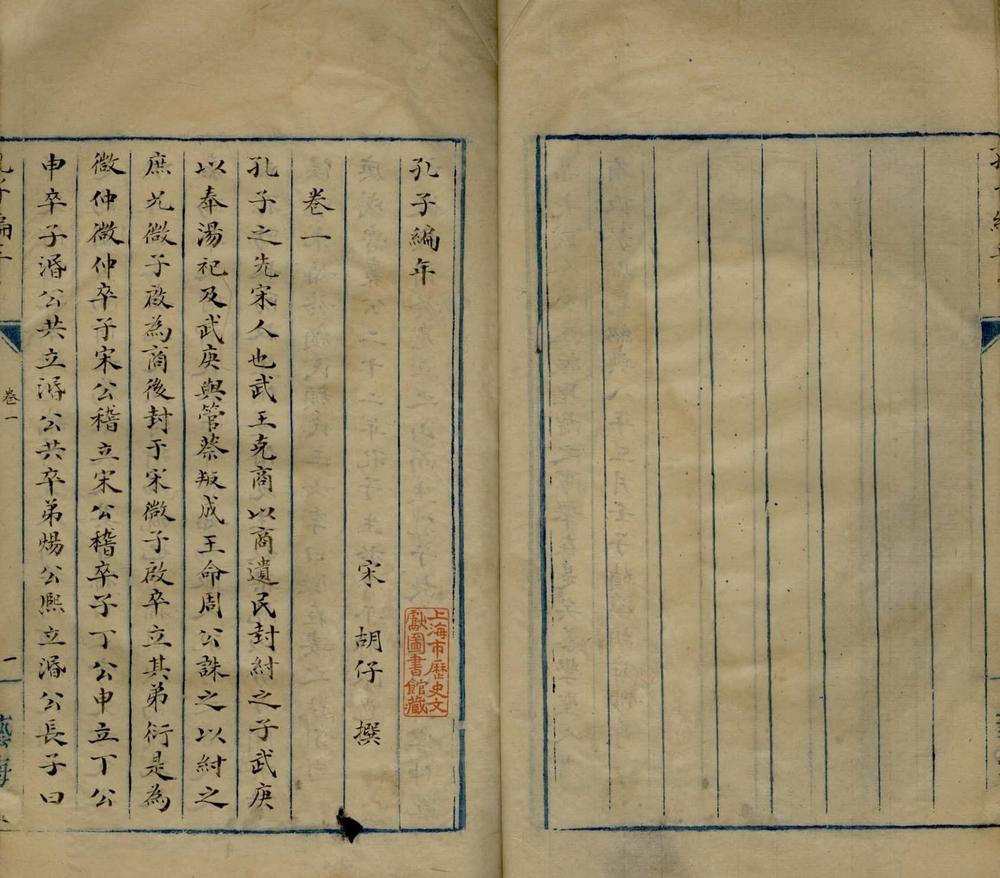 孔子編年
宋 胡仔 撰
上海市歷史文
獻圖書館藏
卷一
孔子之先宋人也武王克商以商遺民封紂之子武庚
以奉湯祀及武庚與管蔡叛成王命周公誅之以紂之
庶兄微子啟為商後封于宋微子啟卒立其弟衍是為
微仲微仲卒子宋公稽立宋公稽卒子丁公申立丁公
申卒子湣公共立湣公共卒弟煬公熙立湣公長子曰
孔子編年
卷一
一
藝海